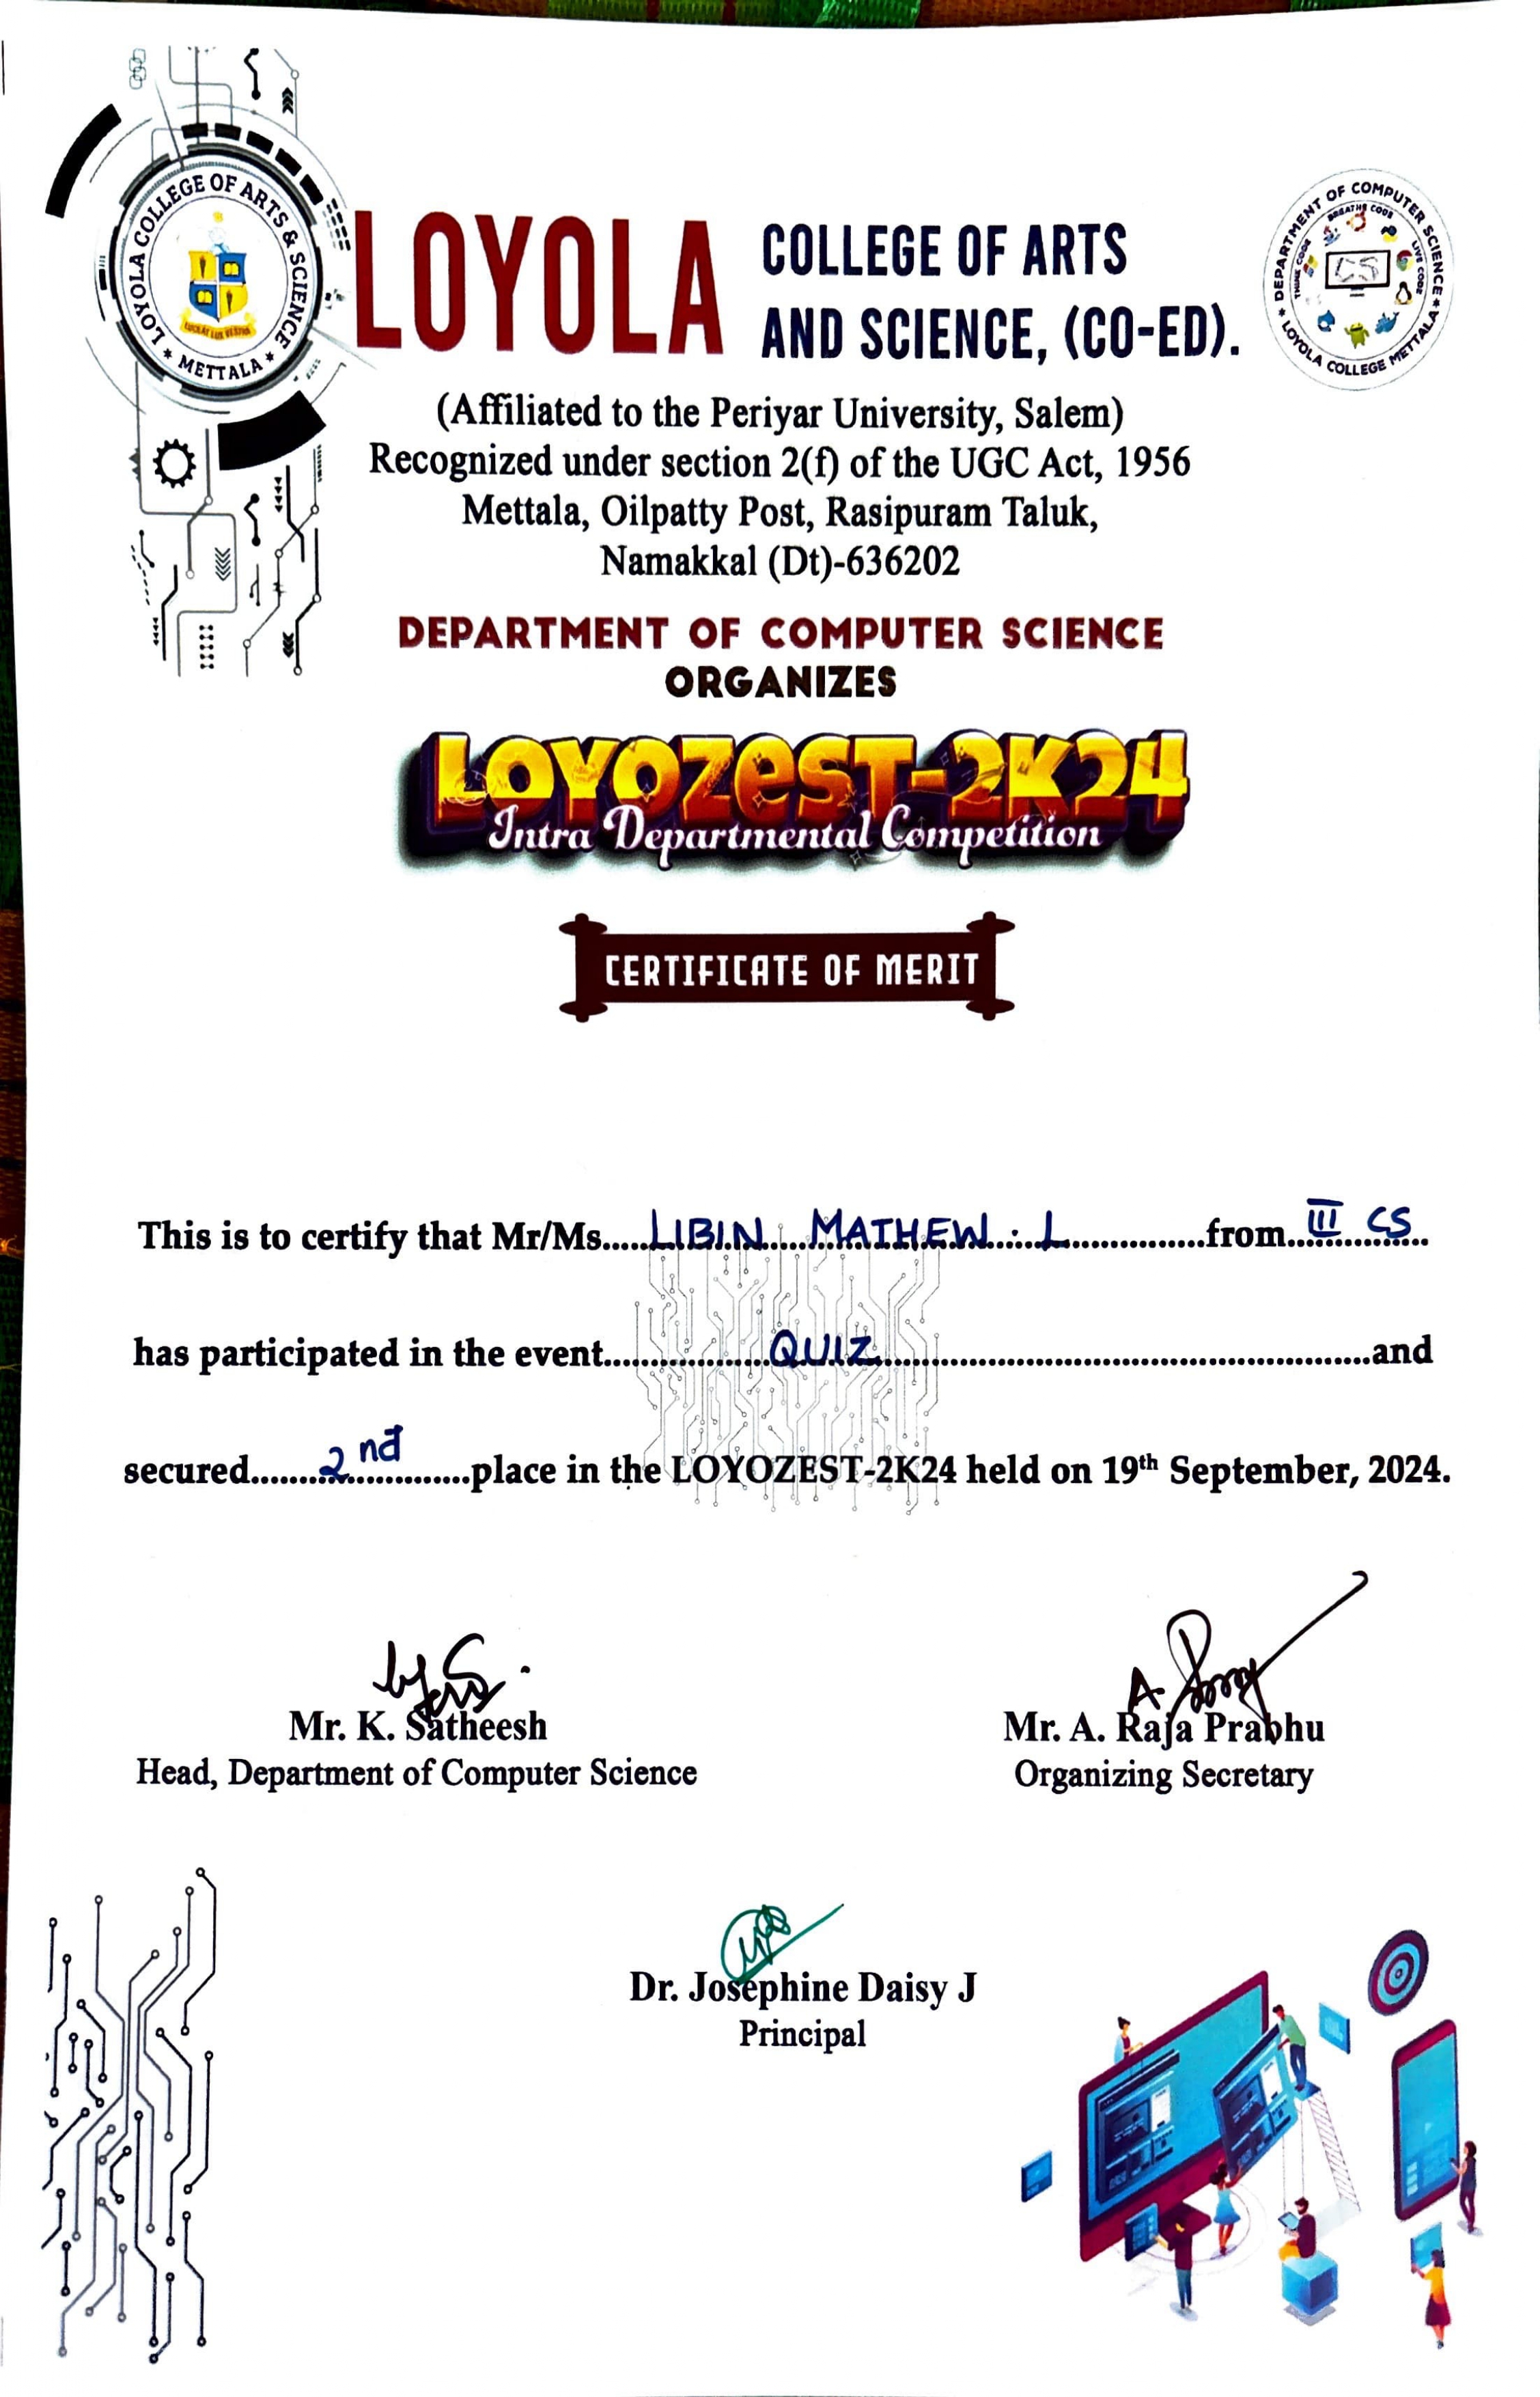 LOYOLA COLLEGE OF ARTS & SCIENCE
* METTALA *
LUCEAT LUX VESTRA
LOYOLA
COLLEGE OF ARTS
AND SCIENCE, (CO-ED).
DEPARTMENT OF COMPUTER SCIENCE
* LOYOLA COLLEGE METTALA *
THINK CODE
BREATHE CODE
LIVE CODE
CS
(Affiliated to the Periyar University, Salem)
Recognized under section 2(f) of the UGC Act, 1956
Mettala, Oilpatty Post, Rasipuram Taluk,
Namakkal (Dt)-636202
DEPARTMENT OF COMPUTER SCIENCE
ORGANIZES
LOYOZEST-2K24
Intra Departmental Competition
CERTIFICATE OF MERIT
This is to certify that Mr/Ms.....LIBIN MATHEW. L...............from...III CS...
has participated in the event..................QUIZ..................................................and
secured........2nd............place in the LOYOZEST-2K24 held on 19th September, 2024.
Mr. K. Satheesh
Head, Department of Computer Science
Mr. A. Raja Prabhu
Organizing Secretary
Dr. Josephine Daisy J
Principal